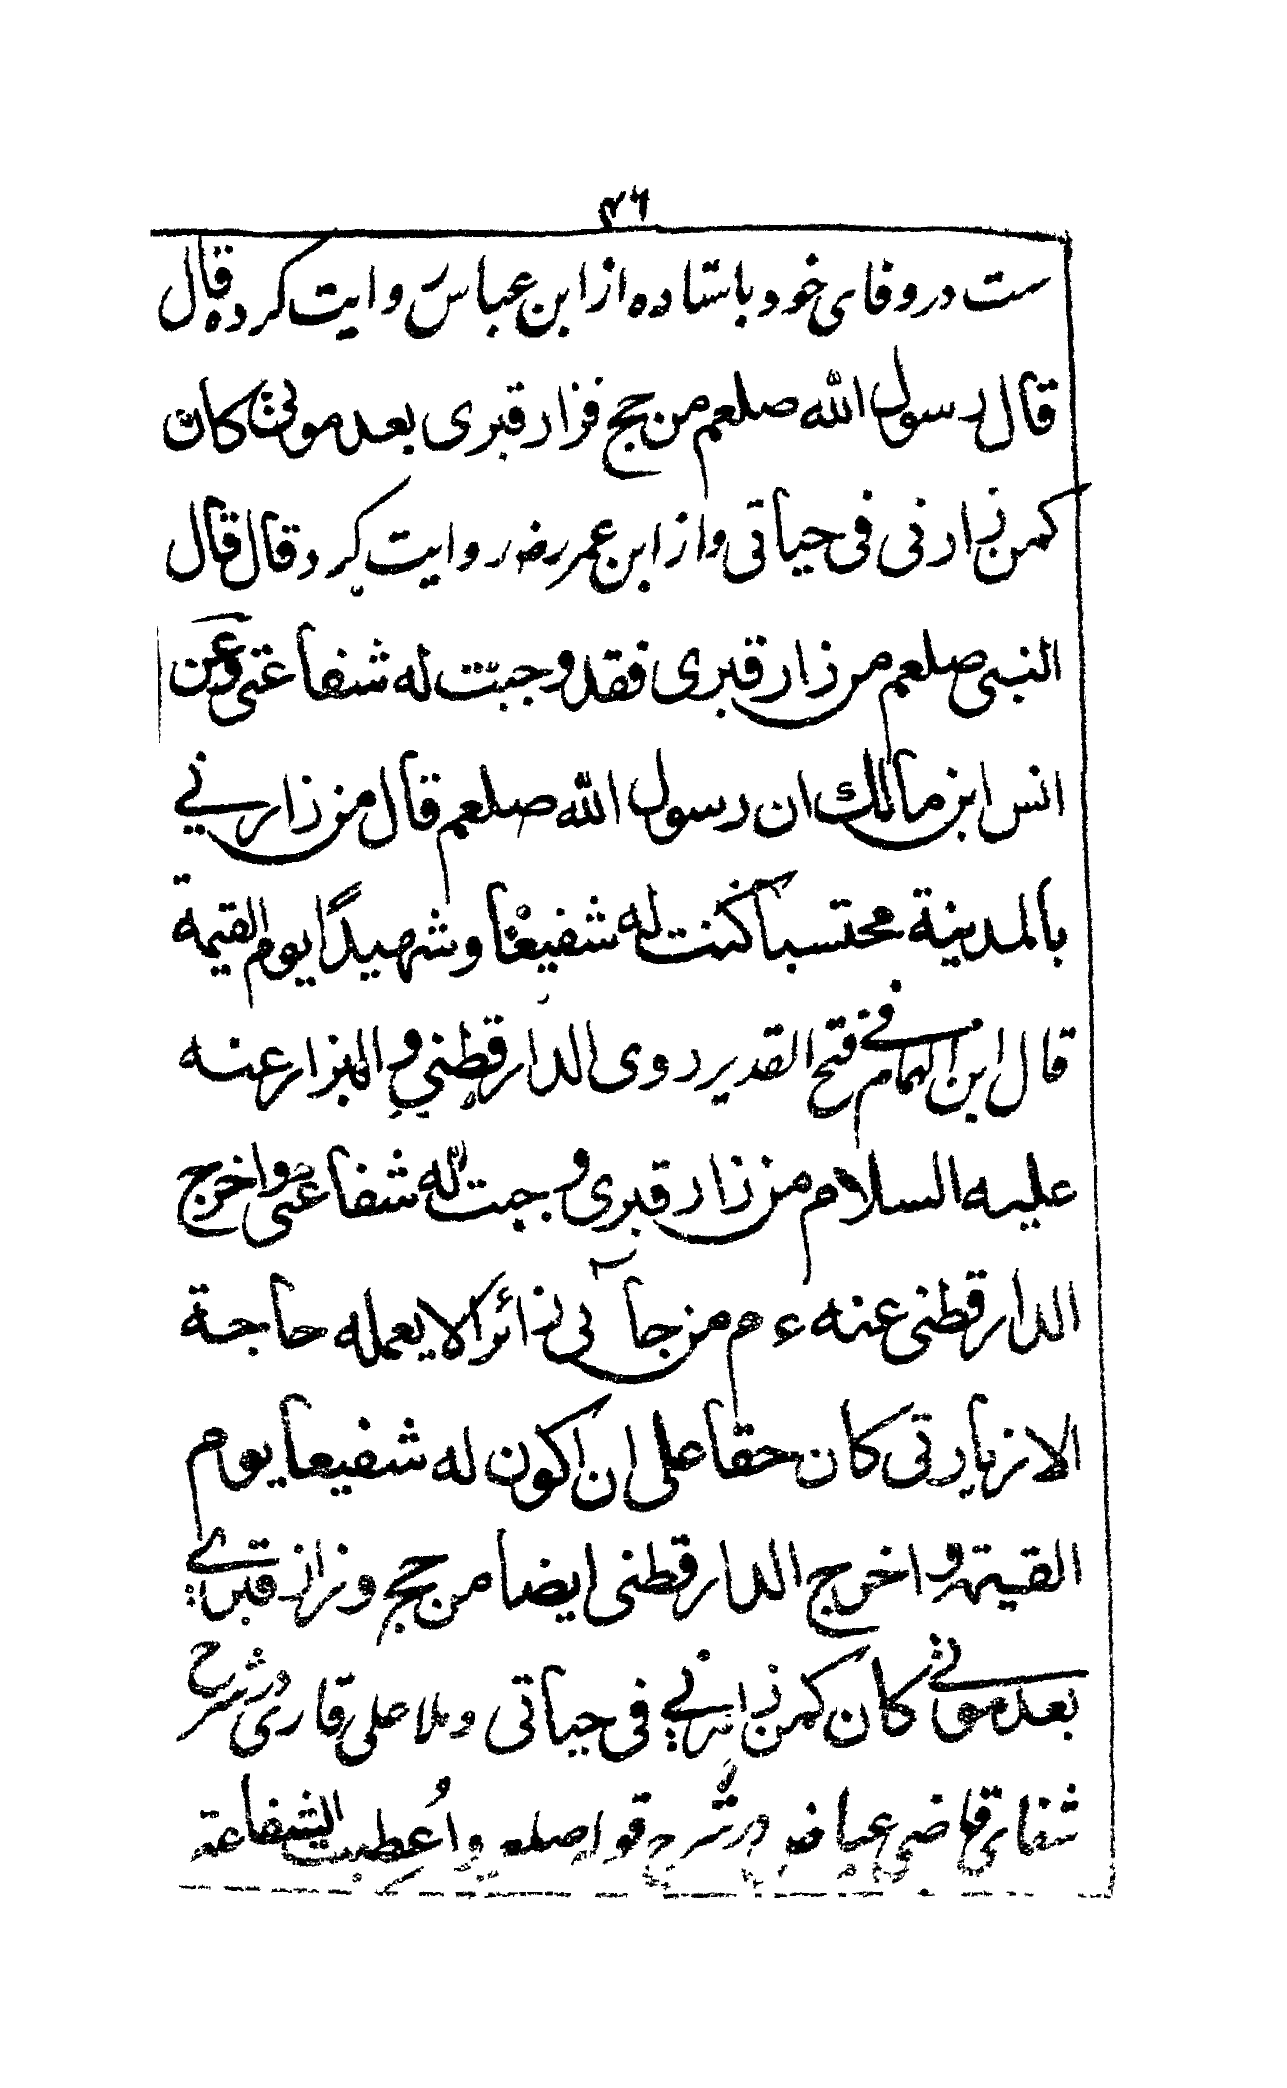 ۳۶
ست در وفای خود باشتاده از ابن عباس روایت کرده قال
قال رسول الله صلعم من حج فزار قبری بعد موتی کان
کمن زارنی فی حیاتی و از ابن عمر رضہ روایت کرد قال قال
النبی صلعم من زار قبری فقد وجبت له شفاعتی وعن
انس ابن مالک ان رسول الله صلعم قال من زارنی
بالمدینة محتسبا کنت له شفیعا و شهیدًا یوم القیمة
قال ابن الهمام فی فتح القدیر روی الدارقطنی و البزار عنه
علیه السلام من زار قبری وجبت له شفاعتی واخرج
الدارقطنی عنه ءم من جآنی زائرا لا یعمله حاجة
الا زیارتی کان حقا علی ان اکون له شفیعا یوم
القیمة واخرج الدارقطنی ایضا من حج و زار قبری
بعد موتی کان کمن زارنی فی حیاتی و ملا علی قاری در شرح
شفای قاضی عیاض در شرح قوله صلعم و اُعطیت الشفاعة